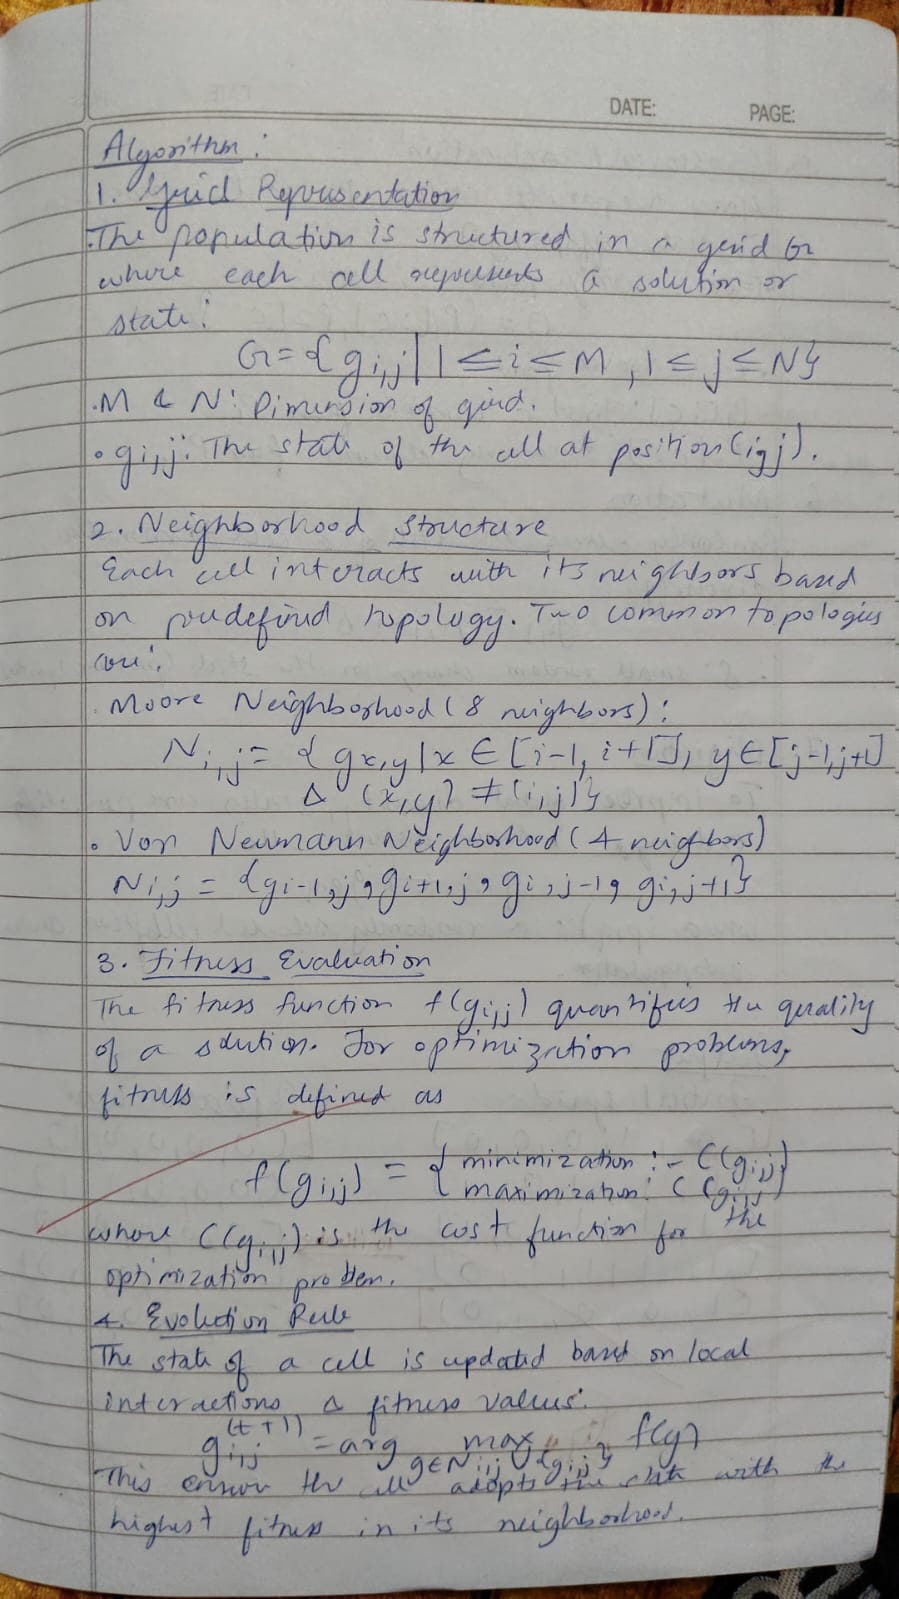 DATE: PAGE:
Algorithm:
1. Grid Representation
.The population is structured in a grid G
where each cell represents a solution or
state:
G={gi,j | 1≤i≤M, 1≤j≤N}
.M & N: Dimension of grid.
• gi,j: The state of the cell at position (i,j).
2. Neighborhood Structure
Each cell interacts with its neighbors based
on predefined topology. Two common topologies
are:
. Moore Neighborhood (8 neighbors):
Ni,j = {gx,y | x ∈ [i-1, i+1], y ∈ [j-1, j+1]
& (x,y) ≠ (i,j)}
• Von Neumann Neighborhood (4 neighbors)
Ni,j = {gi-1,j, gi+1,j, gi,j-1, gi,j+1}
3. Fitness Evaluation
The fitness function f(gi,j) quantifies the quality
of a solution. For optimization problems,
fitness is defined as
f(gi,j) = { minimization: - C(gi,j)
maximization: C(gi,j) }
where C(gi,j) is the cost function for the
optimization problem.
4. Evolution Rule
The state of a cell is updated based on local
interactions & fitness values:
gi,j (t+1) = arg max g∈Ni,j ∪ {gi,j} f(g)
This ensure the cell adopts the state with the
highest fitness in its neighborhood.